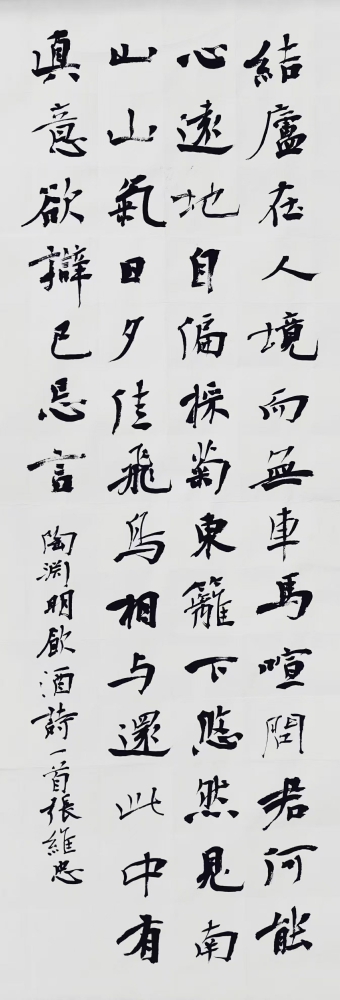 結廬在人境而無車馬喧問君何能
心遠地自偏採菊東籬下悠然見南
山山氣日夕佳飛鳥相与還此中有
真意欲辯已忘言
陶淵明飲酒詩一首張維忠